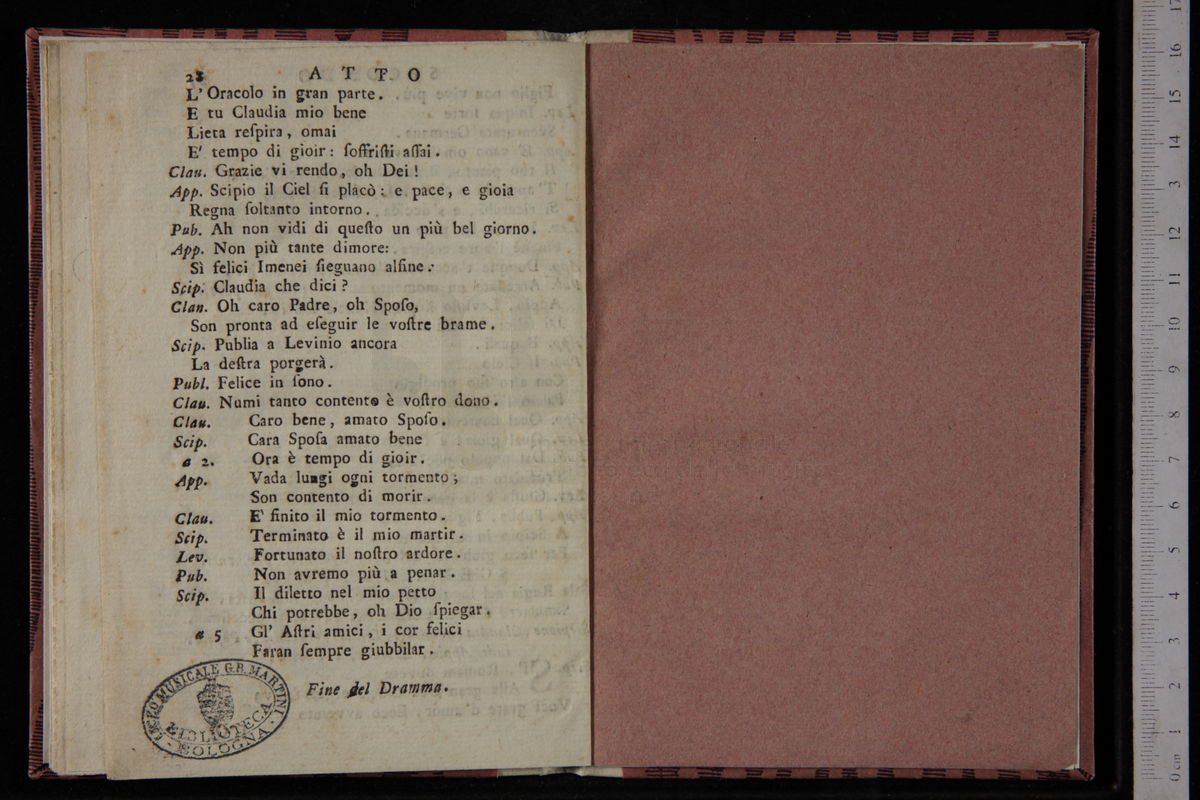 28 ATTO
L' Oracolo in gran parte.
E tu Claudia mio bene
Lieta reſpira, omai
E' tempo di gioir: ſoffriſti aſſai.
Clau. Grazie vi rendo, oh Dei!
App. Scipio il Ciel ſi placò: e pace, e gioia
Regna ſoltanto intorno.
Pub. Ah non vidi di queſto un più bel giorno.
App. Non più tante dimore:
Sì felici Imenei ſieguano alfine:
Scip. Claudia che dici?
Clan. Oh caro Padre, oh Spoſo,
Son pronta ad eſeguir le voſtre brame.
Scip. Publia a Levinio ancora
La deſtra porgerà.
Publ. Felice in ſono.
Clau. Numi tanto contento è voſtro dono.
Clau. Caro bene, amato Spoſo.
Scip. Cara Spoſa amato bene
a 2. Ora è tempo di gioir.
App. Vada lungi ogni tormento;
Son contento di morir.
Clau. E' finito il mio tormento.
Scip. Terminato è il mio martir.
Lev. Fortunato il noſtro ardore.
Pub. Non avremo più a penar.
Scip. Il diletto nel mio petto
Chi potrebbe, oh Dio ſpiegar.
a 5 Gl' Aſtri amici, i cor felici
Faran ſempre giubbilar.
Fine del Dramma.
MUSICALE G.B. MARTINI
BIBLIOTECA
BOLOGNA
0 cm 1 2 3 4 5 6 7 8 9 10 11 12 13 14 15 16 17